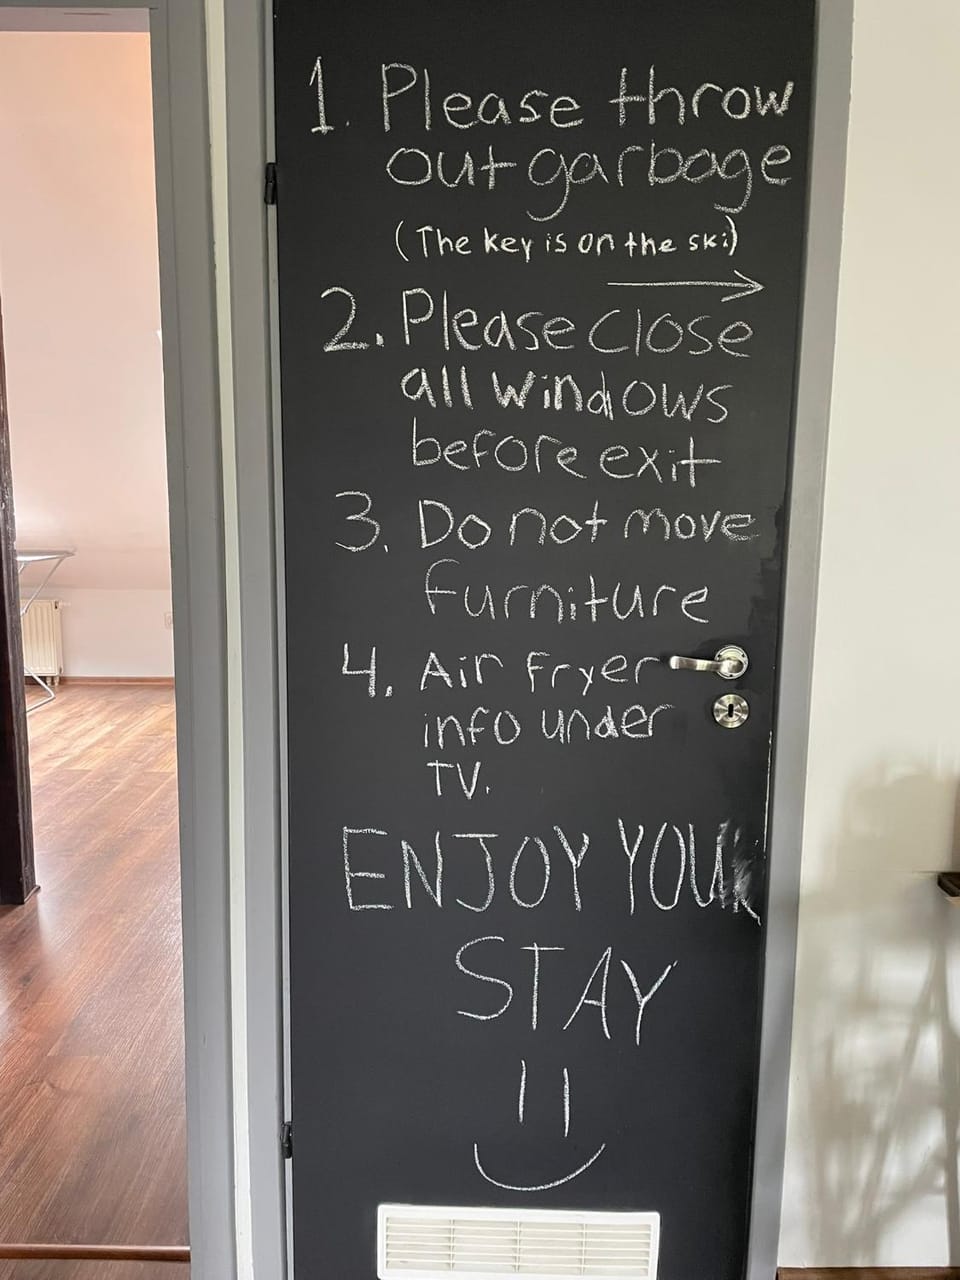 1. Please throw
out garbage
(The key is on the ski)
2. Please close
all windows
before exit
3. Do not move
furniture
4. Air fryer
info under
TV.
ENJOY YOUR
STAY